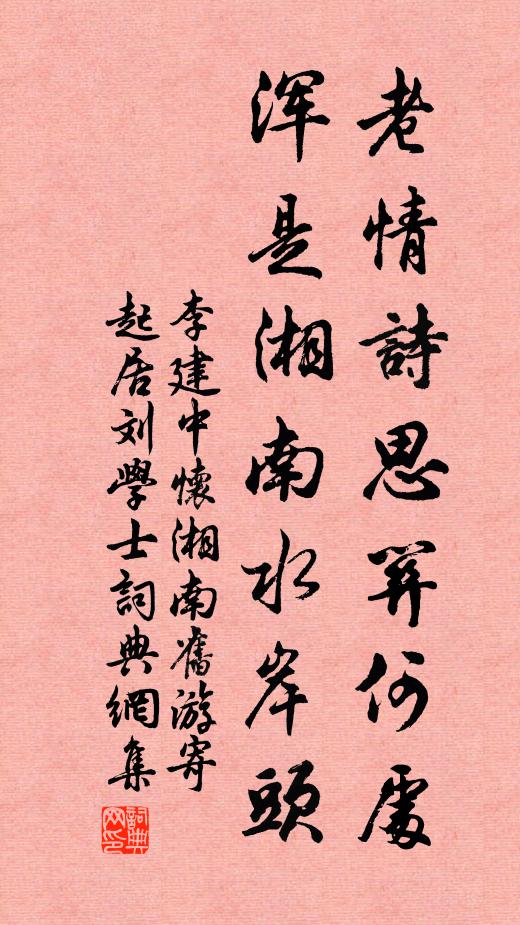 老情詩思關何處
浑是湘南水岸頭
李建中懷湘南舊游寄
起居刘學士詞典網集
詞典网印